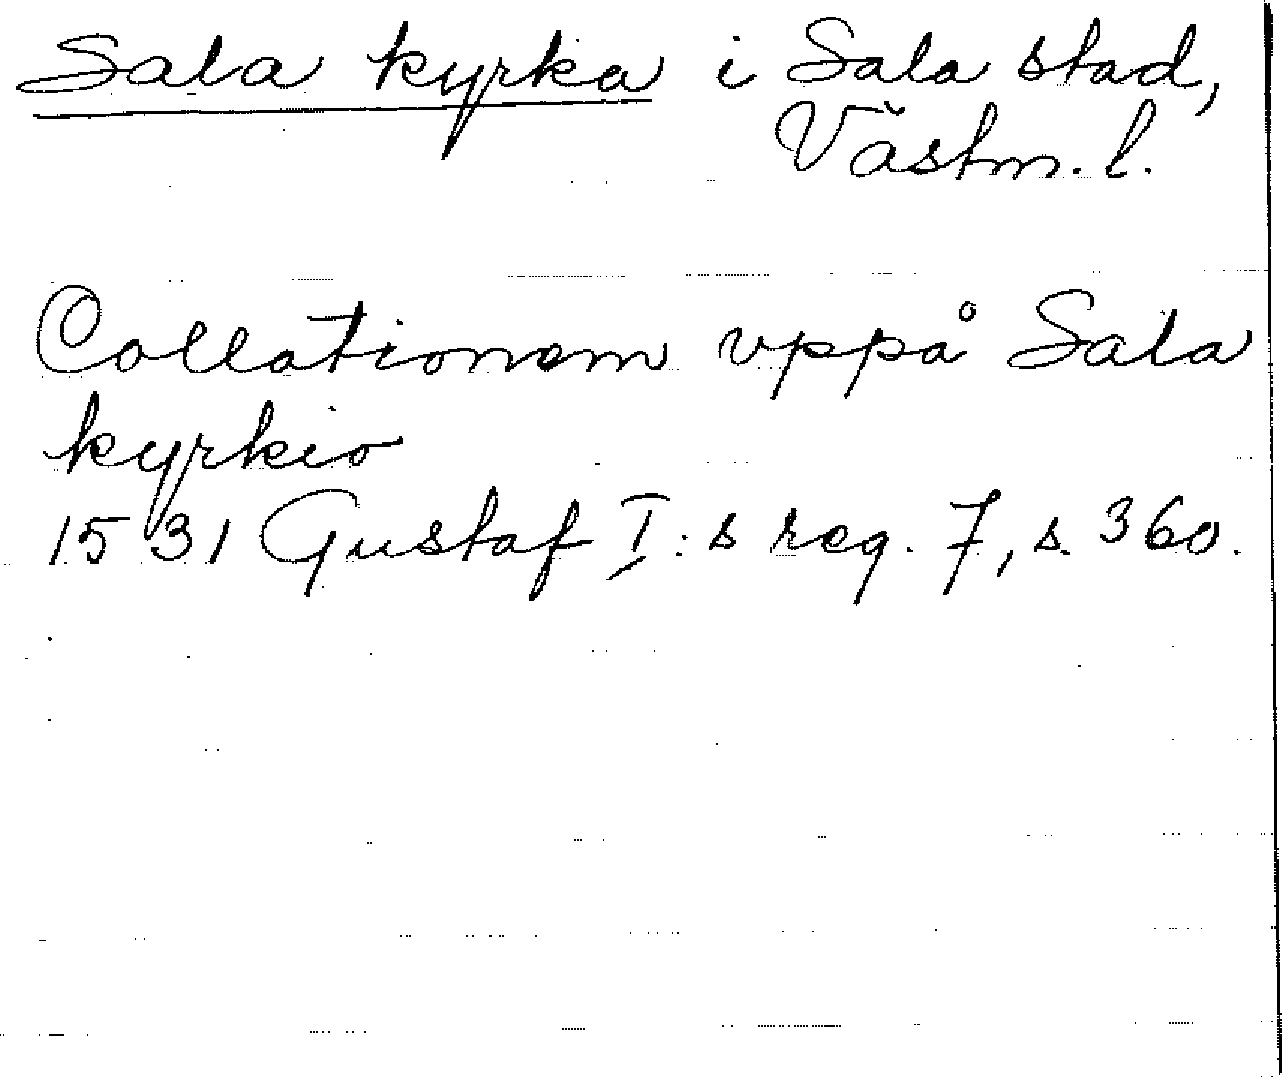 Sala kyrka i Sala stad,
Västm. l.
Collationem vppå Sala
kyrkio
1531 Gustaf I:s reg. 7, s. 360.